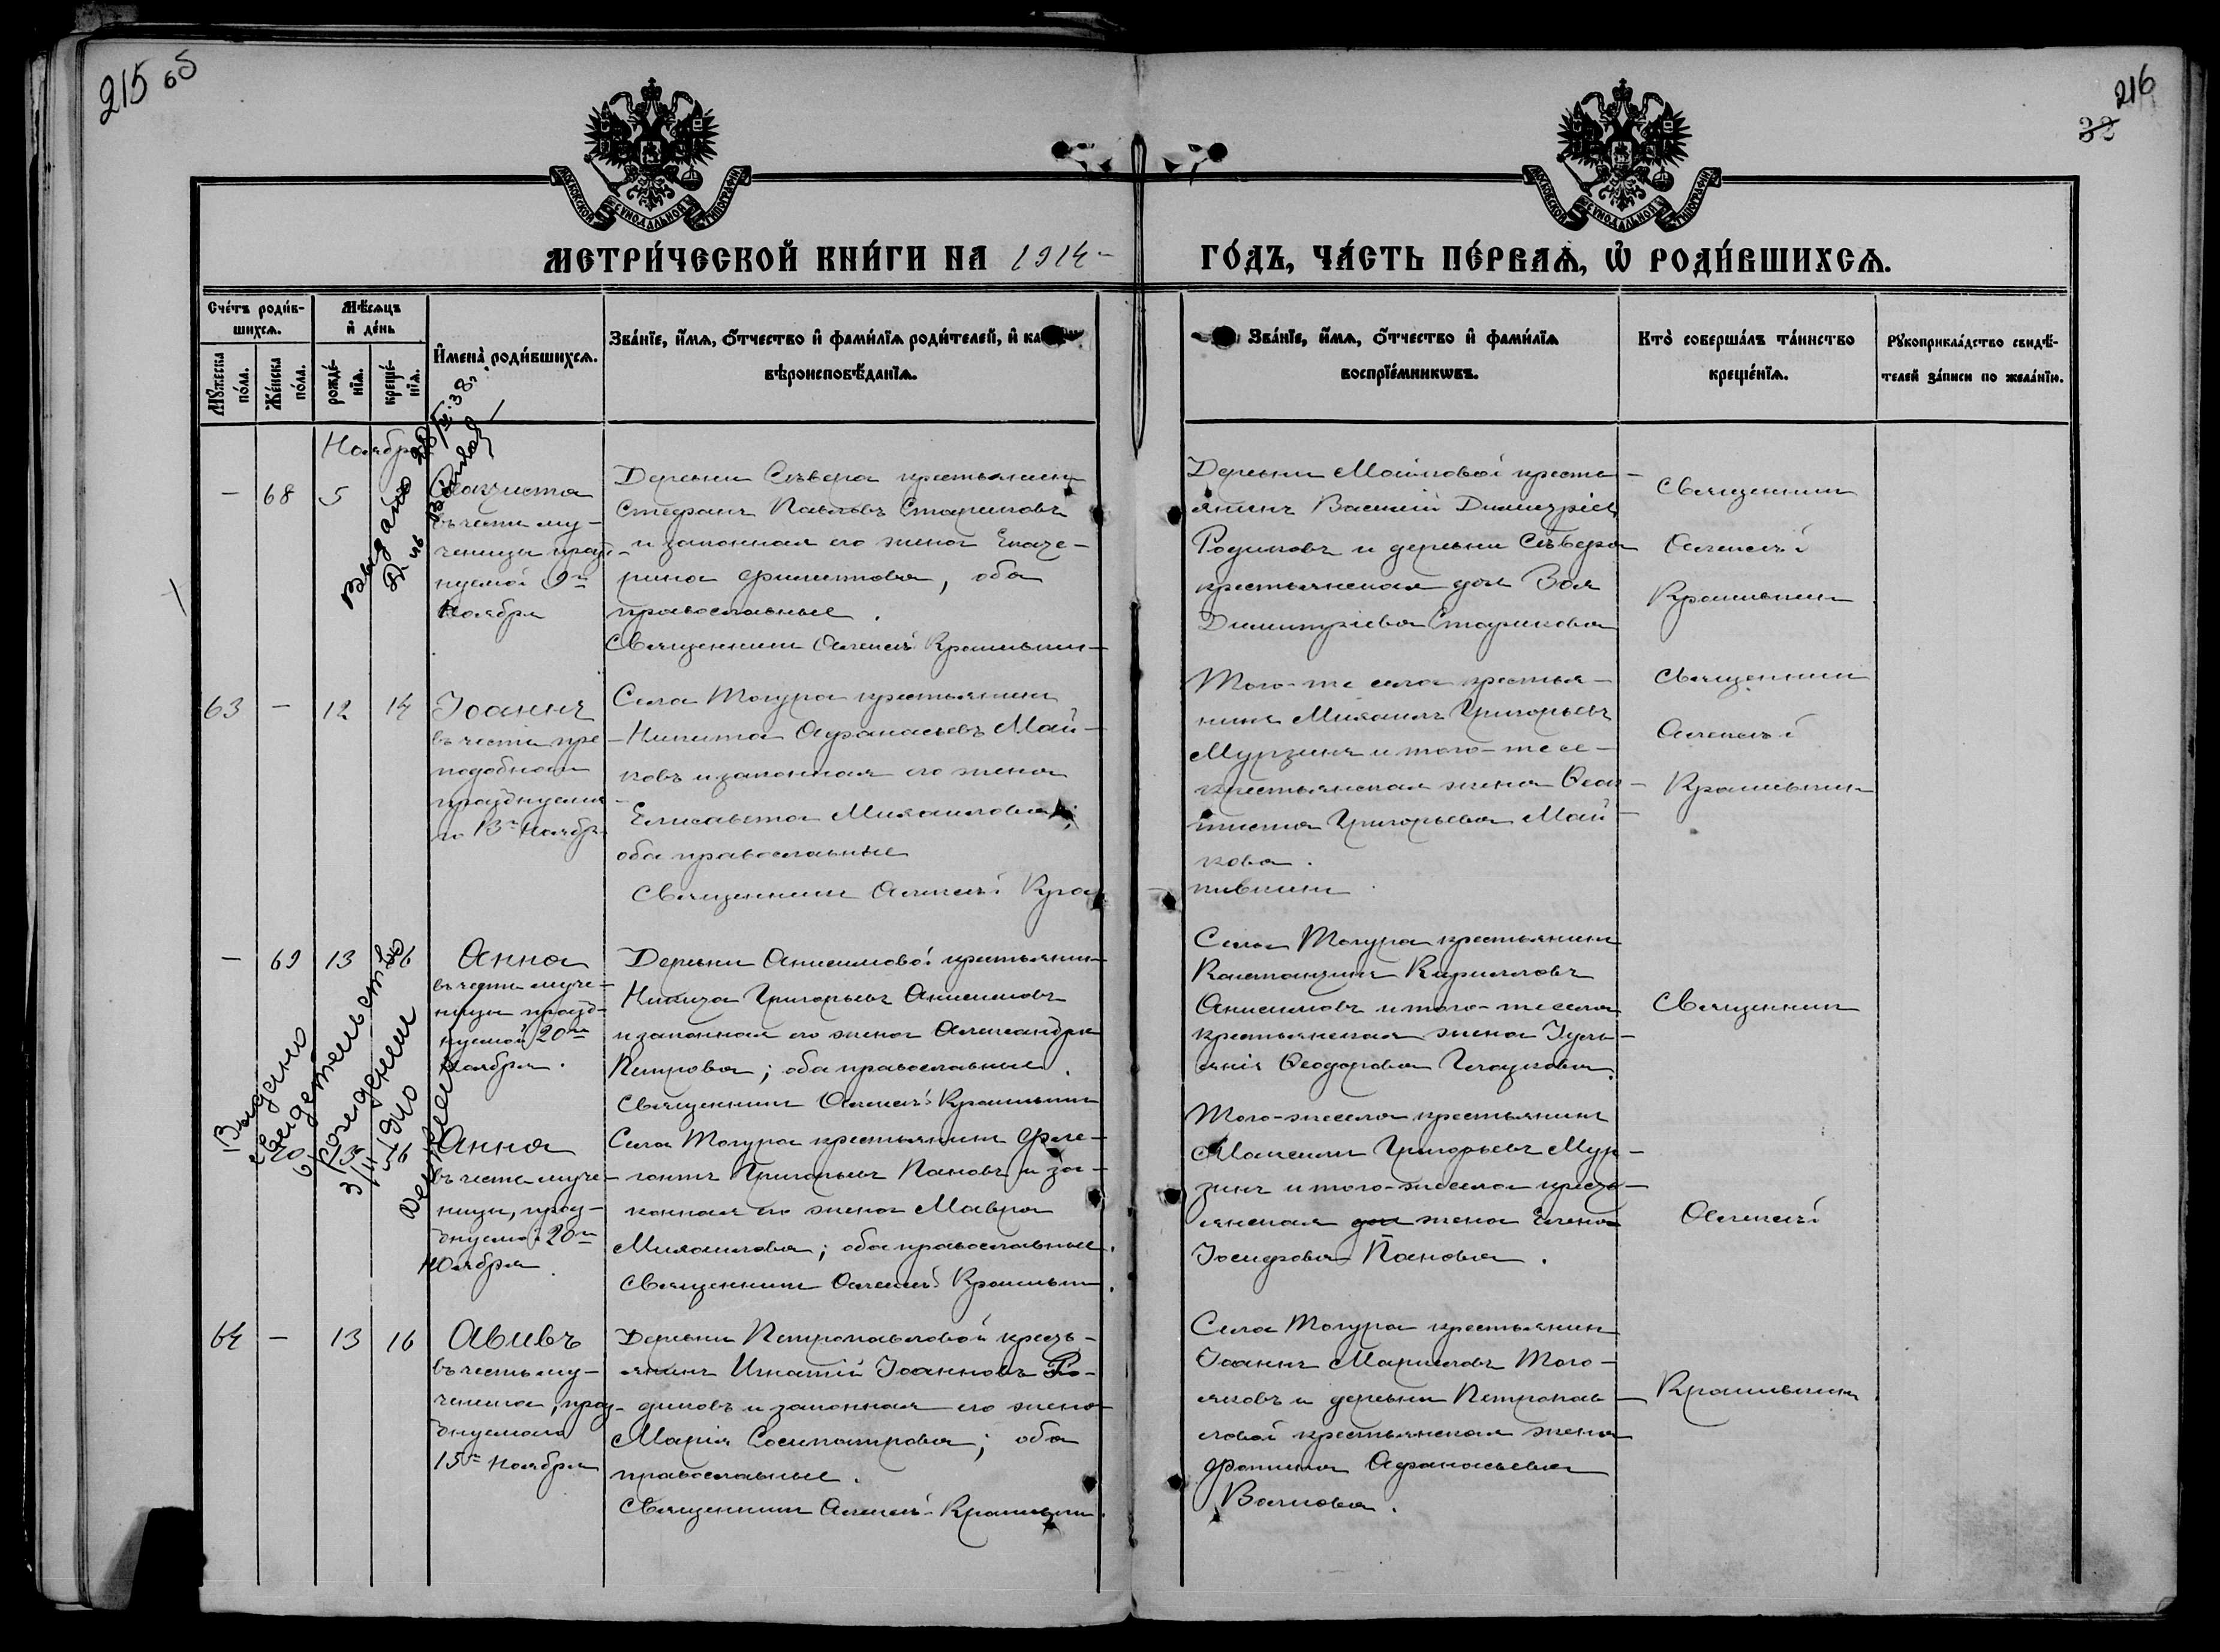 215 65
216
32
МОСКОВСКОЙ СѴНОДАЛЬНОЙ ТИПОГРАФІИ
МОСКОВСКОЙ СѴНОДАЛЬНОЙ ТИПОГРАФІИ
МЕТРИ́ЧЕСКОЙ КНИ́ГИ НА 1914
ГО́ДЪ, ЧА́СТЬ ПЕ́РВАѦ, Ѡ РОДИ́ВШИХСѦ.
Сче́тъ роди́в-
шихсѧ.
Мꙋ́жеска
по́ла.
Же́нска
по́ла.
Мѣ́сѧцъ
и҆ де́нь
рожде́-
нїѧ.
креще́-
нїѧ.
И҆мена̀ роди́вшихсѧ.
Зва́нїе, и҆́мѧ, ѻ҆́тчество и҆ фами́лїѧ роди́телей, и҆ ка
вѣроисповѣ́данїѧ.
Зва́нїе, и҆́мѧ, ѻ҆́тчество и҆ фами́лїѧ
воспрїе́мникѡвъ.
Кто̀ соверша́лъ та́инство
креще́нїѧ.
Рꙋкоприкла́дство свидѣ́-
телей за́писи по жела́нїю.
Ноября
— 68 5
въ честь му-
ченицы празд-
нуемой 9го
Ноября
Деревни Сѣвера крестьянинъ
Стефанъ Павловъ Стариковъ
и законная его жена Екате-
рина Филиппова, оба
православные.
Священникъ Алексѣй Крапивкин
Деревни Майковой кресть-
янинъ Василій Димитріев
Родиковъ и деревни Сѣвера
крестьянская доч Зоя
Димитріева Старикова
Священник
Алексѣй
Крапивкин
Выдано
63 — 12 14
Іоаннъ
въ честь пре-
подобнаго
празднуема-
го 13го Ноябр.
Села Тогура крестьянинъ
Никита Афанасьевъ Май-
ковъ и законная его жена
Елисавета Михаилова;
оба православные
Священникъ Алексѣй Кра
Того-же села крестья-
нинъ Михаилъ Григорьевъ
Мурзинъ и того-же се-
крестьянская жена Ѳеок-
тиста Григорьева Май-
кова.
пивкин
Священник
Алексѣй
Крапивкин
— 69 13 16
Анна
въ честь муче-
ницы празд-
нуемой 20го
Ноября.
Деревни Анисимовой крестьянин
Никита Григорьевъ Анисимовъ
и законная его жена Александра
Петрова; оба православные.
Священникъ Алексѣй Крапивкин
Села Тогура крестьянинъ
Константинъ Кирилловъ
Анисимовъ и того-же села
крестьянская жена Іуль-
янія Ѳеодорова
Священник
Выдано
свидетельство
о рождении
70 13 16
Анна
въ честь муче-
ницы, праз-
днуемой 20го
Ноября
Села Тогура крестьянинъ Фле-
гонтъ Григорьевъ Пановъ и за-
конная его жена Мавра
Михаилова; оба православные.
Священникъ Алексѣй Крапивкин.
Того-же села крестьянинъ
Максимъ Григорьевъ Мур-
зинъ и того-же села кресть-
янская доч жена Елена
Іосифова Панова.
Алексѣй
64 — 13 16
Авивъ
въ честь му-
ченика, праз-
днуемаго
15го Ноября
Деревни Петропавловой кресть-
янинъ Игнатій Іоанновъ Ро-
диковъ и законная его жена
Марія Сосипатрова; оба
православные.
Священникъ Алексѣй Крапивкин.
Села Тогура крестьянинъ
Іоаннъ Того-
и деревни Петропав-
ловой крестьянская жена
Афанасьева
Крапивкин.